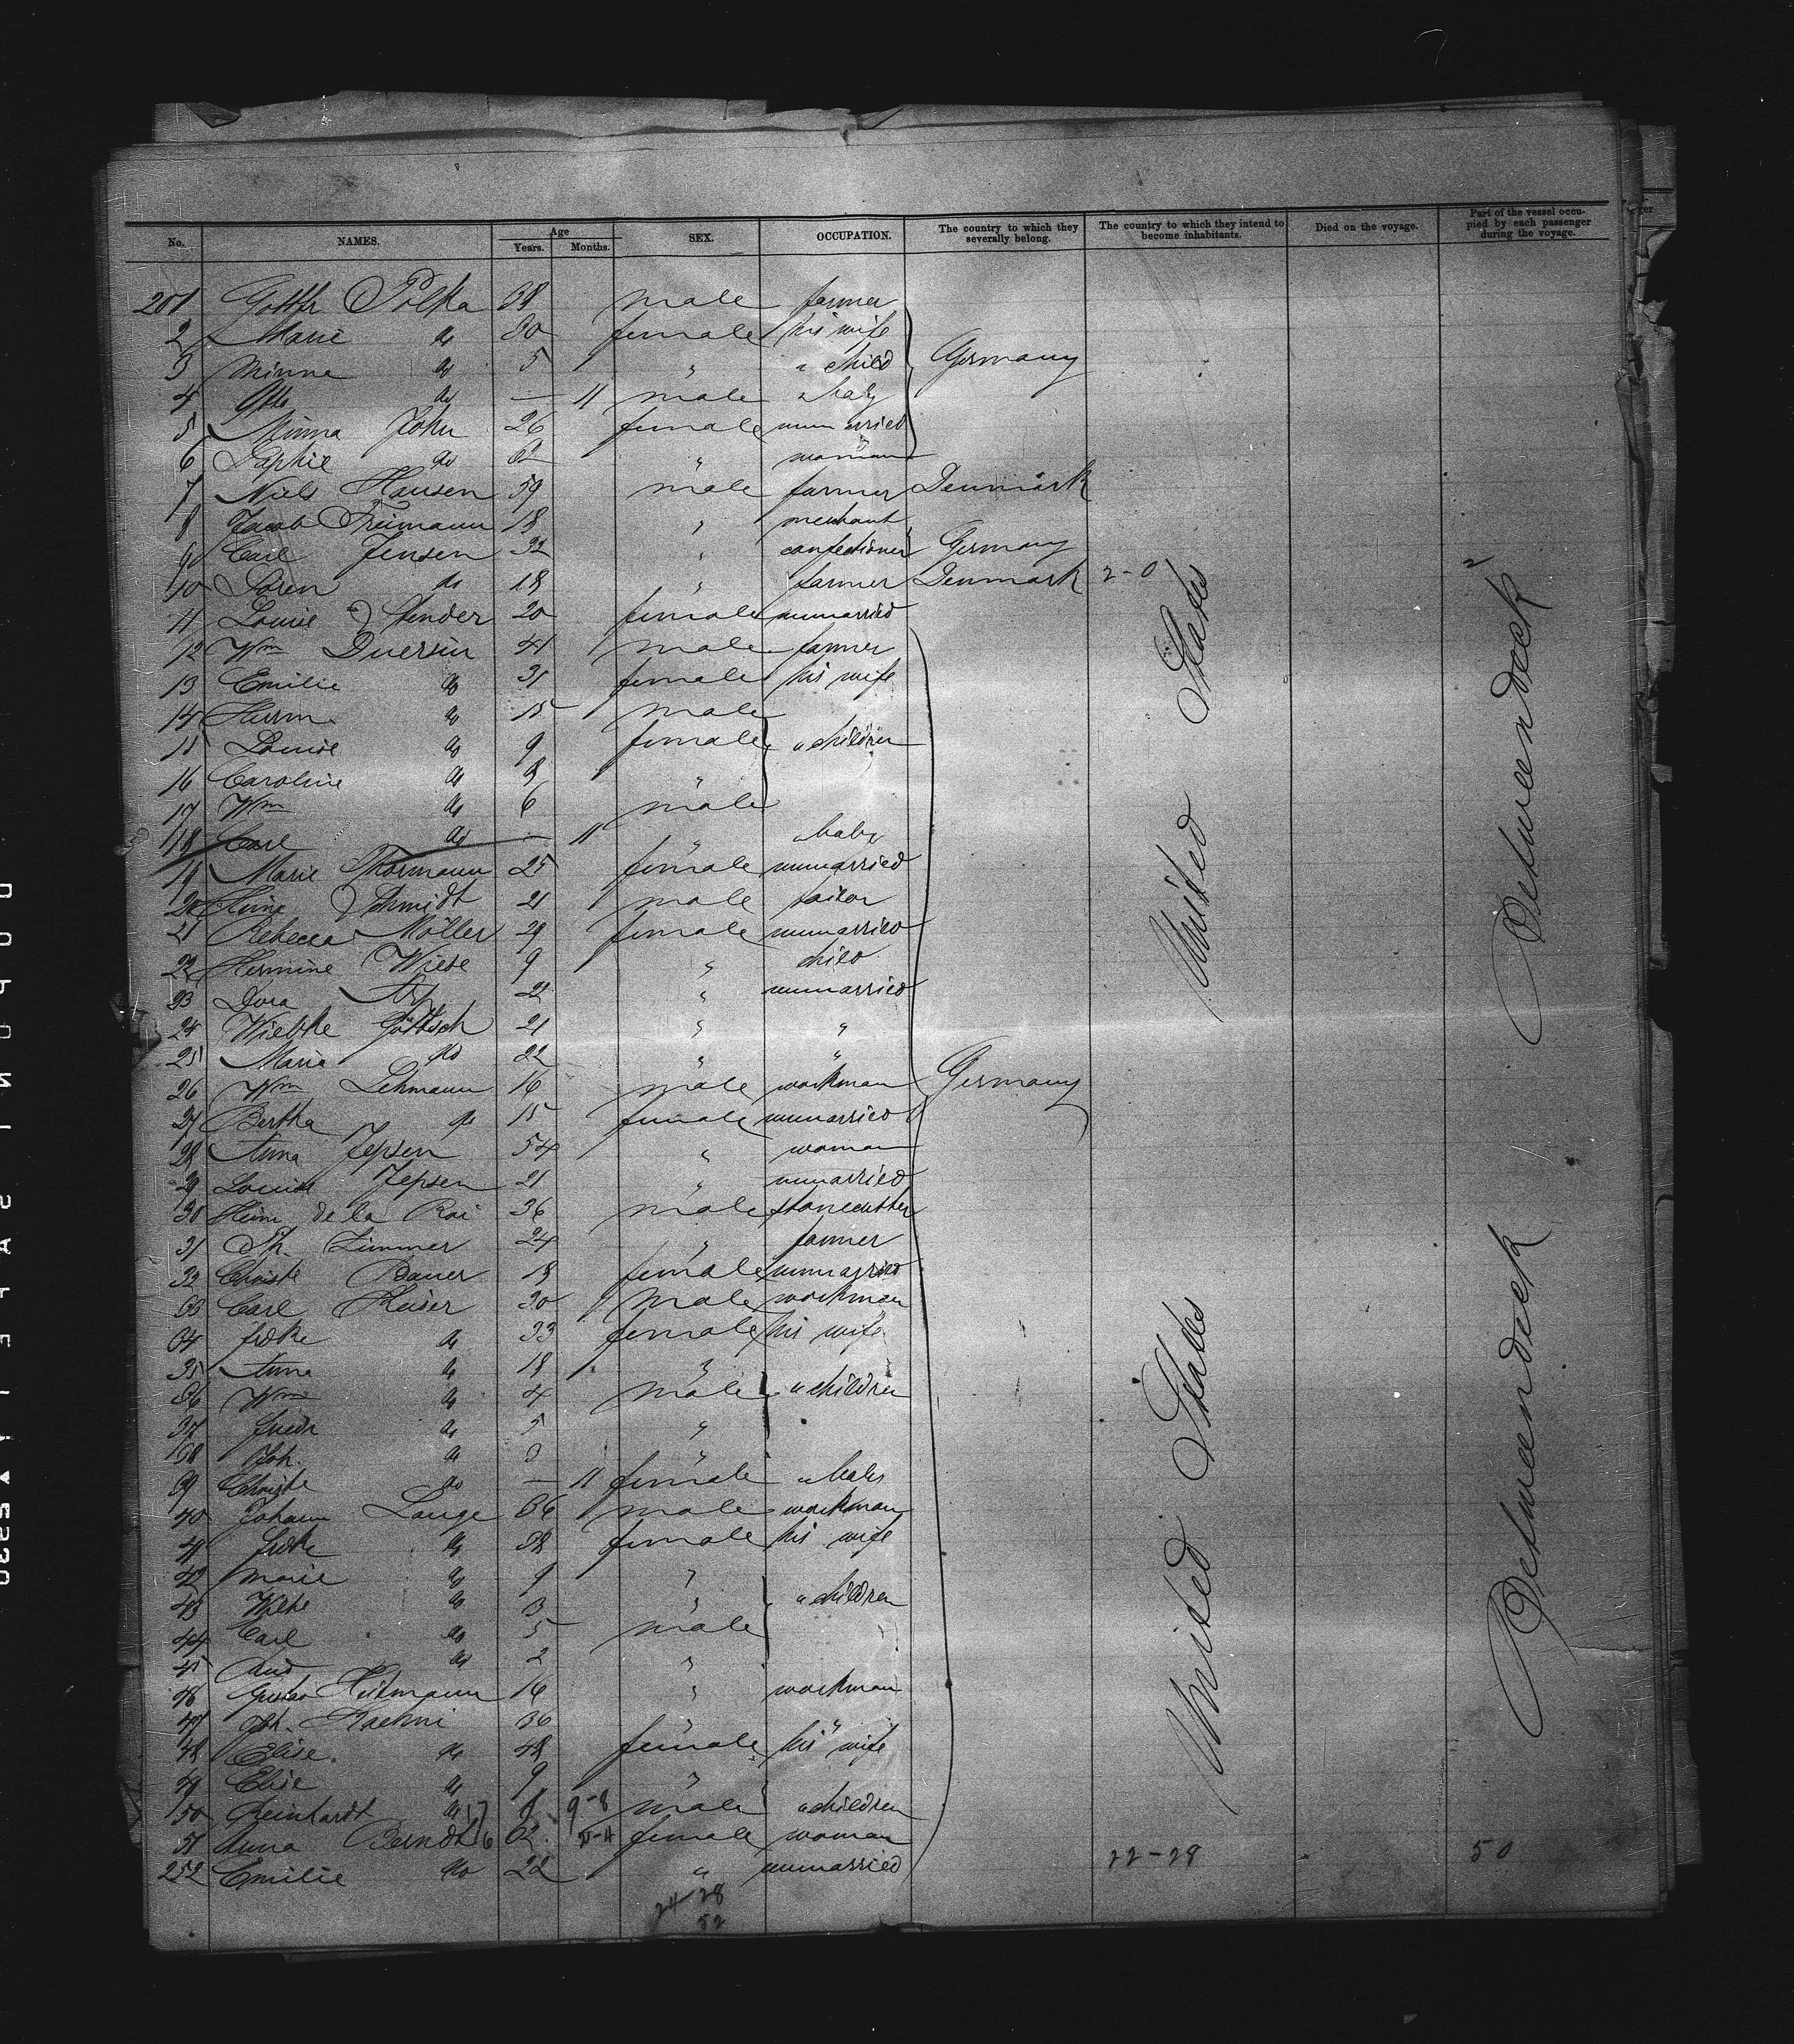 No. NAMES. Age Years. Months. SEX. OCCUPATION. The country to which they severally belong. The country to which they intend to become inhabitants. Died on the voyage. Part of the vessel occupied by each passenger during the voyage.
201 Gottfr Polka 38 male farmer
2 Marie do 30 female his wife
3 Minna do 5 " " child Germany
4 Otto do — 11 male " baby
5 Minna John 26 female unmarried
6 Sophie do 62 " woman
7 Niels Hansen 59 male farmer Denmark
8 Jacob Freimann 18 " merchant
9 Carl Jensen 32 " confectioner Germany
10 Soren do 18 " farmer Denmark 2-0
11 Louise Stender 20 female unmarried
12 Wm Duersin 41 male farmer
13 Emilie do 31 female his wife
14 Herm. do 15 male
15 Louise do 9 female " children
16 Caroline do 8 "
17 Wm do 6 male
18 Carl do — 11 " baby
19 Marie Thormann 25 female unmarried
20 Heinr Schmidt 21 male tailor
21 Rebecca Möller 29 female unmarried
22 Hermine Wiese 9 " child
23 Dora 21 " unmarried
24 Wiebke Göttsch 21 " "
25 Marie do 22 " "
26 Wm Lehmann 16 male workman Germany
27 Bertha do 15 female unmarried
28 Anna Jepsen 54 " woman
29 Louise Jepsen 21 " unmarried
30 Heinr de la Roi 36 male stonecutter
31 Th. Zimmer 24 " farmer
32 Christe Bauer 18 female unmarried
33 Carl Kaiser 30 male workman
34 do 33 female his wife
35 Anna do 18 "
36 Wm do 4 male " children
37 Friedr do 5 "
38 Joh. do 3 "
39 Christe do — 11 female " baby
40 Johann Lange 36 male workman
41 do 38 female his wife
42 Marie do 9 "
43 Wiebe do 3 " " children
44 Carl do 5 male
45 do 2 "
46 Gustav Heitmann 16 " workman
47 Joh. 36 " "
48 Elise do 48 female his wife
49 Elise do 9 "
50 Reinhardt do 8 9-8 male " children
51 Anna Berndt 62 female woman
252 Emilie do 22 " unmarried
24-28
52
United States
United States
22-28
Betweendeck
Betweendeck
50